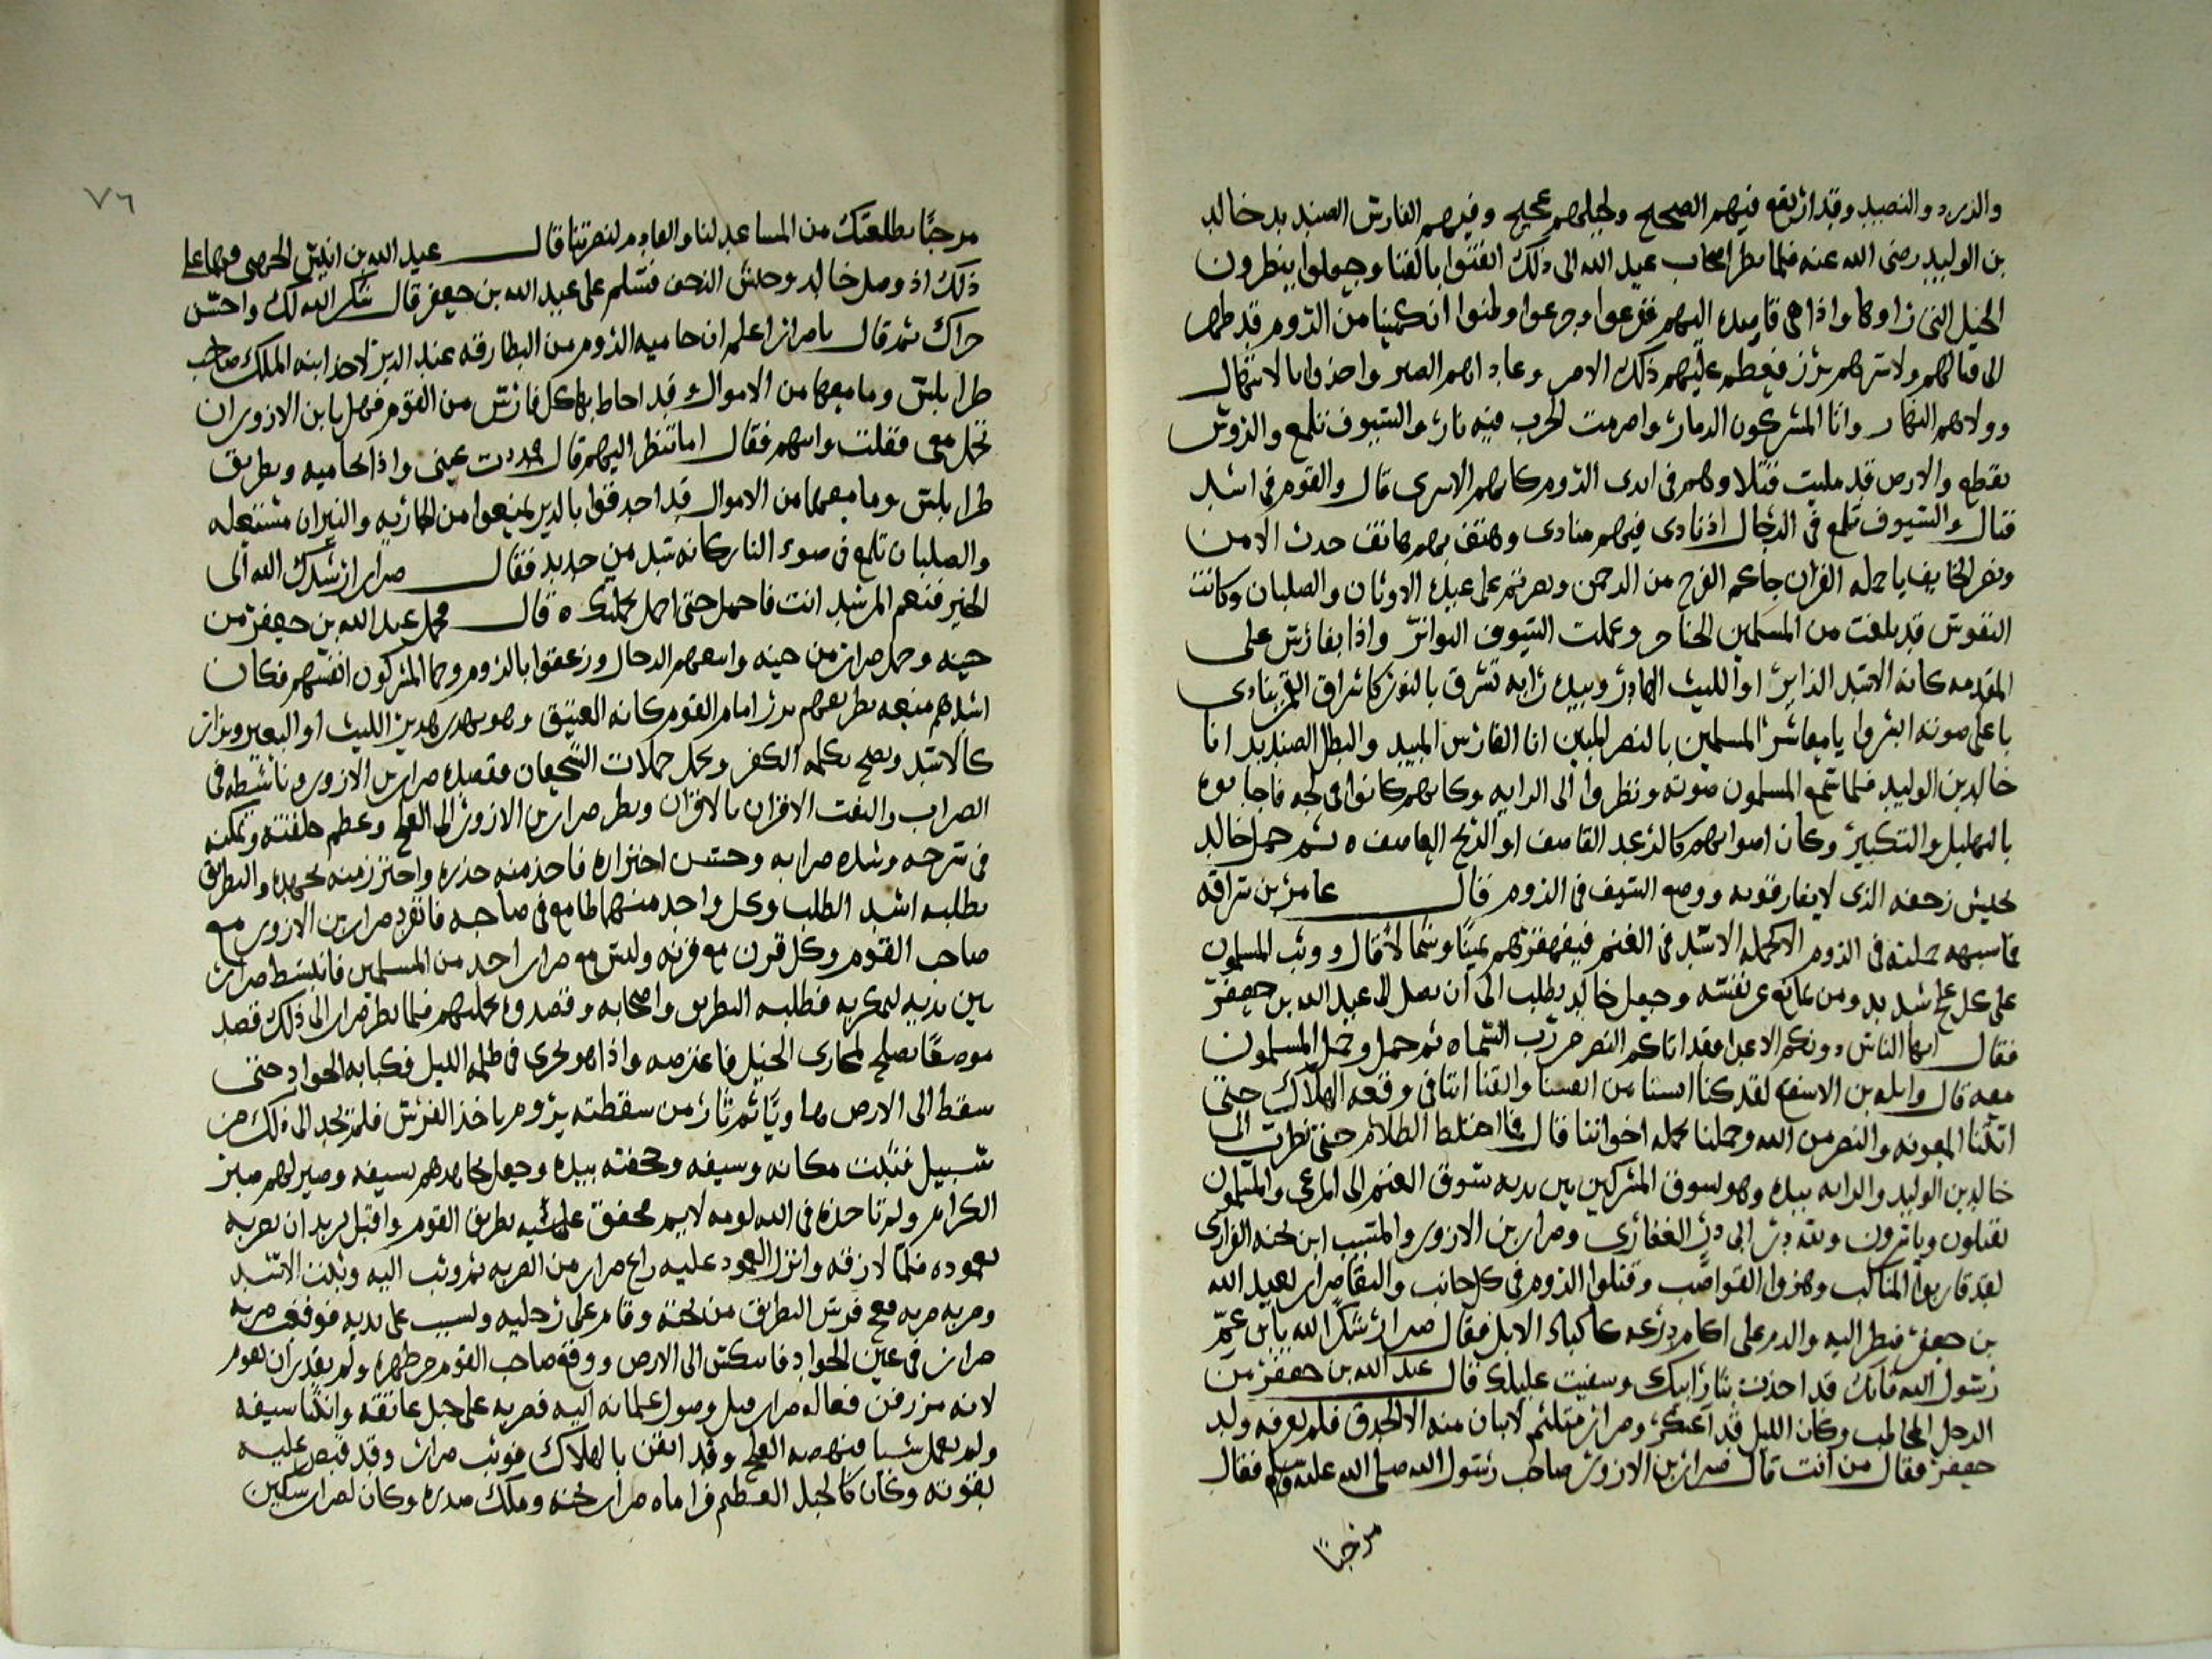 والزرد والنضيد وقد ارتفع فيهم الصحيح ولخيلهم عجيج وفيهم الفارس الصنديد خالد
بن الوليد رضى الله عنه فلما نظر اصحاب عبد الله الى ذلك ايقنوا بالفنا وجعلوا ينظرون
الخيل التى راوها واذا هى قاصده اليهم ففزعوا وجزعوا وظنوا ان كمينا من الروم قد ظهر
الى قتالهم ولاسرهم برز فعظم عليهم ذلك الامر وعاد اهم الصبر واخذوا بالابتهال
وولاهم النهار واتا المشركون الدمار واضرمت الحرب فيه نار والسيوف تلمع والروس
تقطع والارض قد مليت قتلا وهم فى ايدى الروم كانهم الاسرى قال والقوم فى اشد
قتال والسيوف تلمع فى الرجال اذ نادى فيهم منادى وهتف بهم هاتف خذل الامن
ونصر الخايف يا حملة القران جاكم الفرج من الرحمن ونصرتم على عبدة الاوثان والصلبان وكانت
النفوس قد بلغت من المسلمين الحناجر وعملت السيوف البواتر واذا بفارس على
المقدمه كانه الاسد الزاير او الليث الهادر وبيده رايه تشرق بالنور كاشراق القمر ينادى
باعلى صوته ابشروا يا معاشر المسلمين بالنصر المبين انا الفارس المبيد والبطل الصنديد انا
خالد بن الوليد فلما سمع المسلمون صوته ونظروا الى الرايه وكانهم كانوا فى لجه فاجابوه
بالتهليل والتكبير وكان اصواتهم كالرعد القاصف او الريح العاصف ه ثم حمل خالد
بجيش زحفه الذى لا يفارقونه ووضع السيف فى الروم قال عامر بن سراقه
فما شبهت حملته فى الروم الا كحملة الاسد فى الغنم فيقهقرهم يمينا وشمالا قال ووثب المسلمون
على كل علج شديد ومن مانع عن نفسه وجعل خالد يطلب الى ان يصل الى عبد الله بن جعفر
فقال ايها الناس دونكم الاعدا فقد اتاكم النصر من رب السماه ثم حمل وحمل المسلمون
معه قال واثله بن الاسقع لقد كنا ايسنا من انفسنا وايقنا اننا فى وقعه الهلاك حتى
اتتنا المعونه والنصر من الله وحملنا بحمله اخواننا قال فما اختلط الظلام حتى نظرت الى
خالد بن الوليد والرايه بيده وهو يسوق المشركين بين يديه سوق الغنم الى المرعى والمسلمون
يقتلون وياسرون ولله در ابى ذر الغفارى وضرار بن الازور والمسيب ابن نجبه الفزارى
لقد قاربوا المناكب وهزوا القواضب وقتلوا الروم فى كل جانب والتقا ضرار بعبد الله
بن جعفر فنظر اليه والدم على اكمام درعه كاكباد الابل فقال ضرار شكرا لله يا ابن عم
رسول الله فانك قد اخذت بثار ابيك وشفيت غليلك فقال عبد الله بن جعفر من
الرجل المخاطب وكان الليل قد اعتكر وضرار متلثم لا يبان منه الا الحدق فلم يعرفه ولد
جعفر فقال من انت قال ضرار بن الازور صاحب رسول الله صلى الله عليه وسلم فقال
مرحبا
٧٦
مرحبًا بطلعتك من المساعد لنا والقادم لنصرتنا قال عبد الله بن انيس الجهنى فبينما هما على
ذلك اذ وصل خالد وجيش الزحف فسلم على عبد الله بن جعفر قال شكر الله لك واحسن
جزاك ثم قال يا ضرار اعلم ان حاميه الروم من البطارقه عند الدير لاخذ ابنه الملك صاحب
طرابلس وما معها من الاموال وقد احاط بها كل فارس من القوم فهل يا ابن الازور ان
تحمل معى فقلت واين هم فقال اما تنظر اليهم قال فمددت عينى واذا بحاميه وبطريق
طرابلس وما معهما من الاموال قد احدقوا بالدير ليمنعوا من الجاريه والنيران مشتعله
والصلبان تلمع فى ضوء النار كانه سد من حديد فقال ضرار ارشدك الله الى
الخير فنعم المرشد انت فاحمل حتى احمل بحملتك ه قال فحمل عبد الله بن جعفر من
حينه وحمل ضرار من حينه واتبعهم الرجال وزعقوا بالروم وحما المشركون انفسهم فكان
اشدهم منعه بطريقهم برز امام القوم كانه الفنيق وهو يهدر هدير الليث او البعير ويزار
كالاسد ويصيح بكلمه الكفر ويحمل حملات الشجعان فقصده ضرار بن الازور وناشطه فى
الضراب والتفت الاقران بالاقران ونظر ضرار بن الازور الى العلج وعظم خلقته وتمكنه
فى سرجه وشده ضرابه وحسن احترازه فاخذ منه حذره واحترز منه بجهده والبطريق
يطلبه اشد الطلب وكل واحد منهما طامع فى صاحبه فانفرد ضرار بن الازور مع
صاحب القوم وكل قرن مع قرنه وليس مع ضرار احد من المسلمين فانبسط ضرار
بين يديه ليمكر به فطلبه البطريق واصحابه وقصدوه بحملتهم فلما نظر ضرار الى ذلك قصد
موضعًا يصلح لمجارى الخيل فاعترضه واذا هو يجرى فى ظلمه الليل فكبا به الجواد حتى
سقط الى الارض هاويًا ثم ثار من سقطته يروم ياخذ الفرس فلم يجد الى ذلك من
سبيل فثبت مكانه وسيفه وجحفته بيده وجعل يجاهدهم بسيفه وصبر لهم صبر
الكرام ولم تاخذه فى الله لومه لايم فحقق عليه بطريق القوم واقبل يريد ان يضربه
بعموده فلما لازقه وانزل العمود عليه راغ ضرار من الضربه ثم وثب اليه وثبت الاسد
وضربه ضربه فوقع فرس البطريق من تحته وقام على رجليه ولبب على يديه فوقعت ضربه
ضرار فى عين الجواد فانتكس الى الارض ووقع صاحب القوم عن ظهره ولم يقدر ان يقوم
لانه مزرفن فعاله ضرار قبل وصول غلمانه اليه فضربه على حبل عاتقه وانثنا سيفه
ولم يعمل شيا فنهضه العلج وقد ايقن بالهلاك فوثب ضرار وقد قبض عليه
بقوته وكان كالجبل العظيم فراماه ضرار تحته وملك صدره وكان لضرار سكين